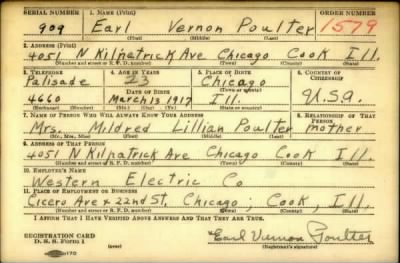 SERIAL NUMBER 1. NAME (Print) ORDER NUMBER
909 Earl Vernon Poulter 1579
(First) (Middle) (Last)
2. ADDRESS (Print)
4051 N Kilpatrick Ave Chicago Cook Ill.
(Number and street or R. F. D. number) (Town) (County) (State)
3. TELEPHONE 4. AGE IN YEARS 5. PLACE OF BIRTH 6. COUNTRY OF CITIZENSHIP
Palisade 23 Chicago
DATE OF BIRTH (Town or county)
4660 March 13 1917 Ill. U.S.a.
(Exchange) (Number) (Mo.) (Day) (Yr.) (State or country)
7. NAME OF PERSON WHO WILL ALWAYS KNOW YOUR ADDRESS 8. RELATIONSHIP OF THAT PERSON
Mrs. Mildred Lillian Poulter mother
(Mr., Mrs., Miss) (First) (Middle) (Last)
9. ADDRESS OF THAT PERSON
4051 N Kilpatrick Ave Chicago Cook Ill.
(Number and street or R. F. D. number) (Town) (County) (State)
10. EMPLOYER'S NAME
Western Electric Co
11. PLACE OF EMPLOYMENT OR BUSINESS
Cicero Ave & 22nd St, Chicago; Cook, Ill.
(Number and street or R. F. D. number) (Town) (County) (State)
I AFFIRM THAT I HAVE VERIFIED ABOVE ANSWERS AND THAT THEY ARE TRUE.
REGISTRATION CARD
D. S. S. Form 1 (over) Earl Vernon Poulter
(Registrant's signature)